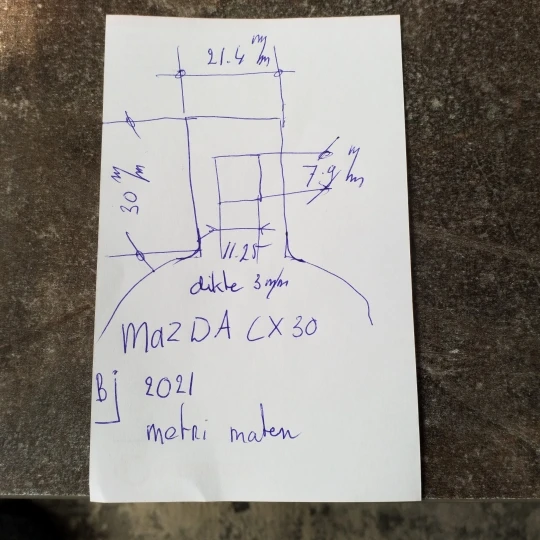 21.4 m/m
7.9 m/m
30 m/m
11.25
dikte 3 m/m
MAZDA CX30
Bj 2021
metri maten